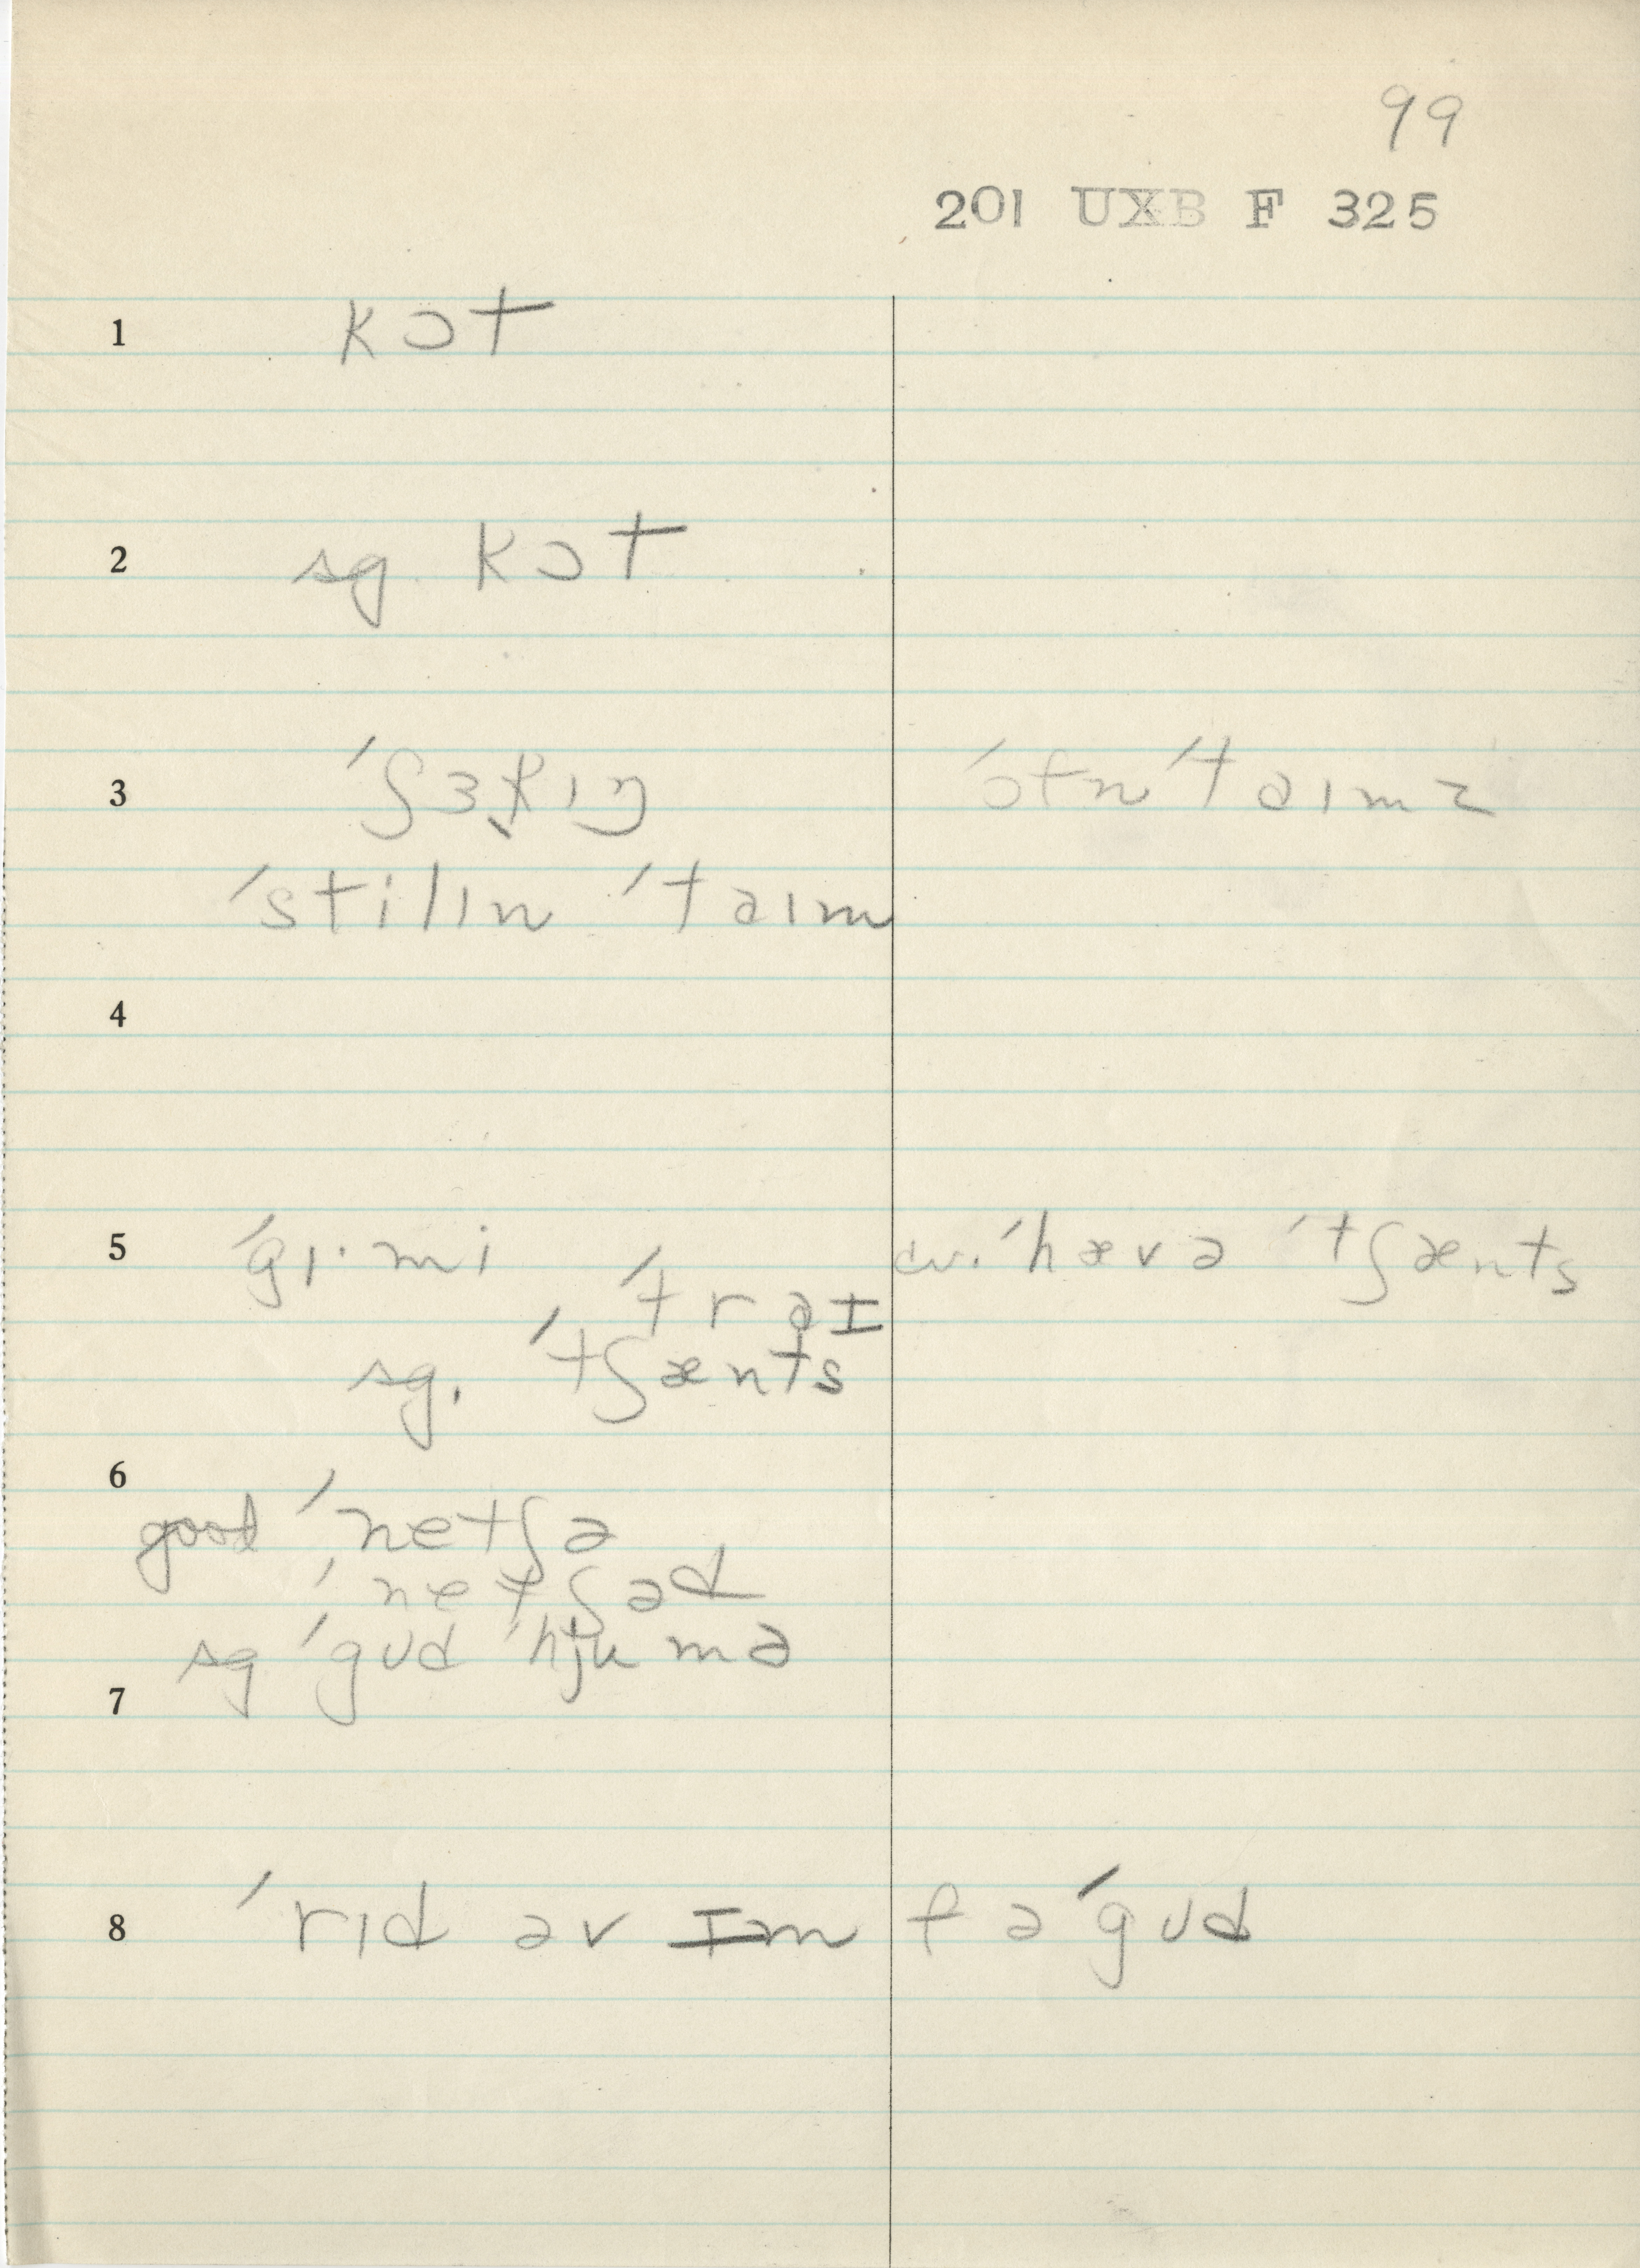 99
201 UXB F 325
1 kɔt
2 sg. kɔt
3 ˈʃɜk̬ɪŋ ˈɔfn ˈtaɪmz
ˈstilɪn ˈtaɪm
4
5 ˈgɪ·mi ˈtraɪ cv. ˈhævə ˈtʃænts
sg. ˈtʃænts
6
good ˈnetʃə
ˈnetʃəd
sg ˈgʊd ˈhjumə
7
8 ˈrɪd əv ɪm fə ˈgʊd